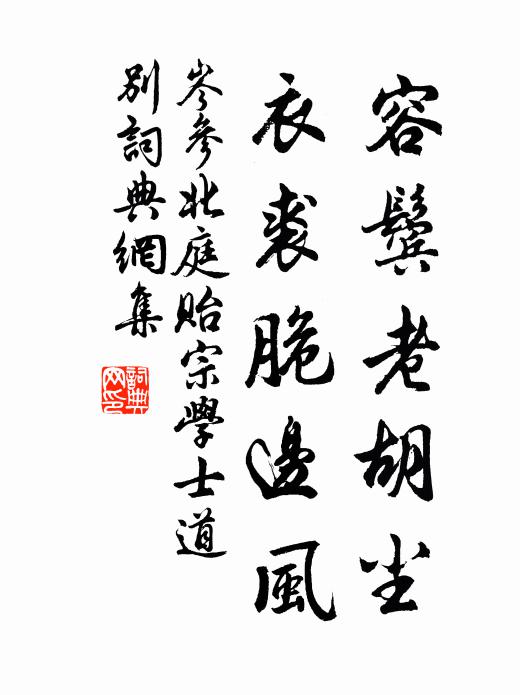 容鬢老胡尘
衣裘脆邊風
岑參北庭貽宗學士道
別詞典網集
詞典
网印